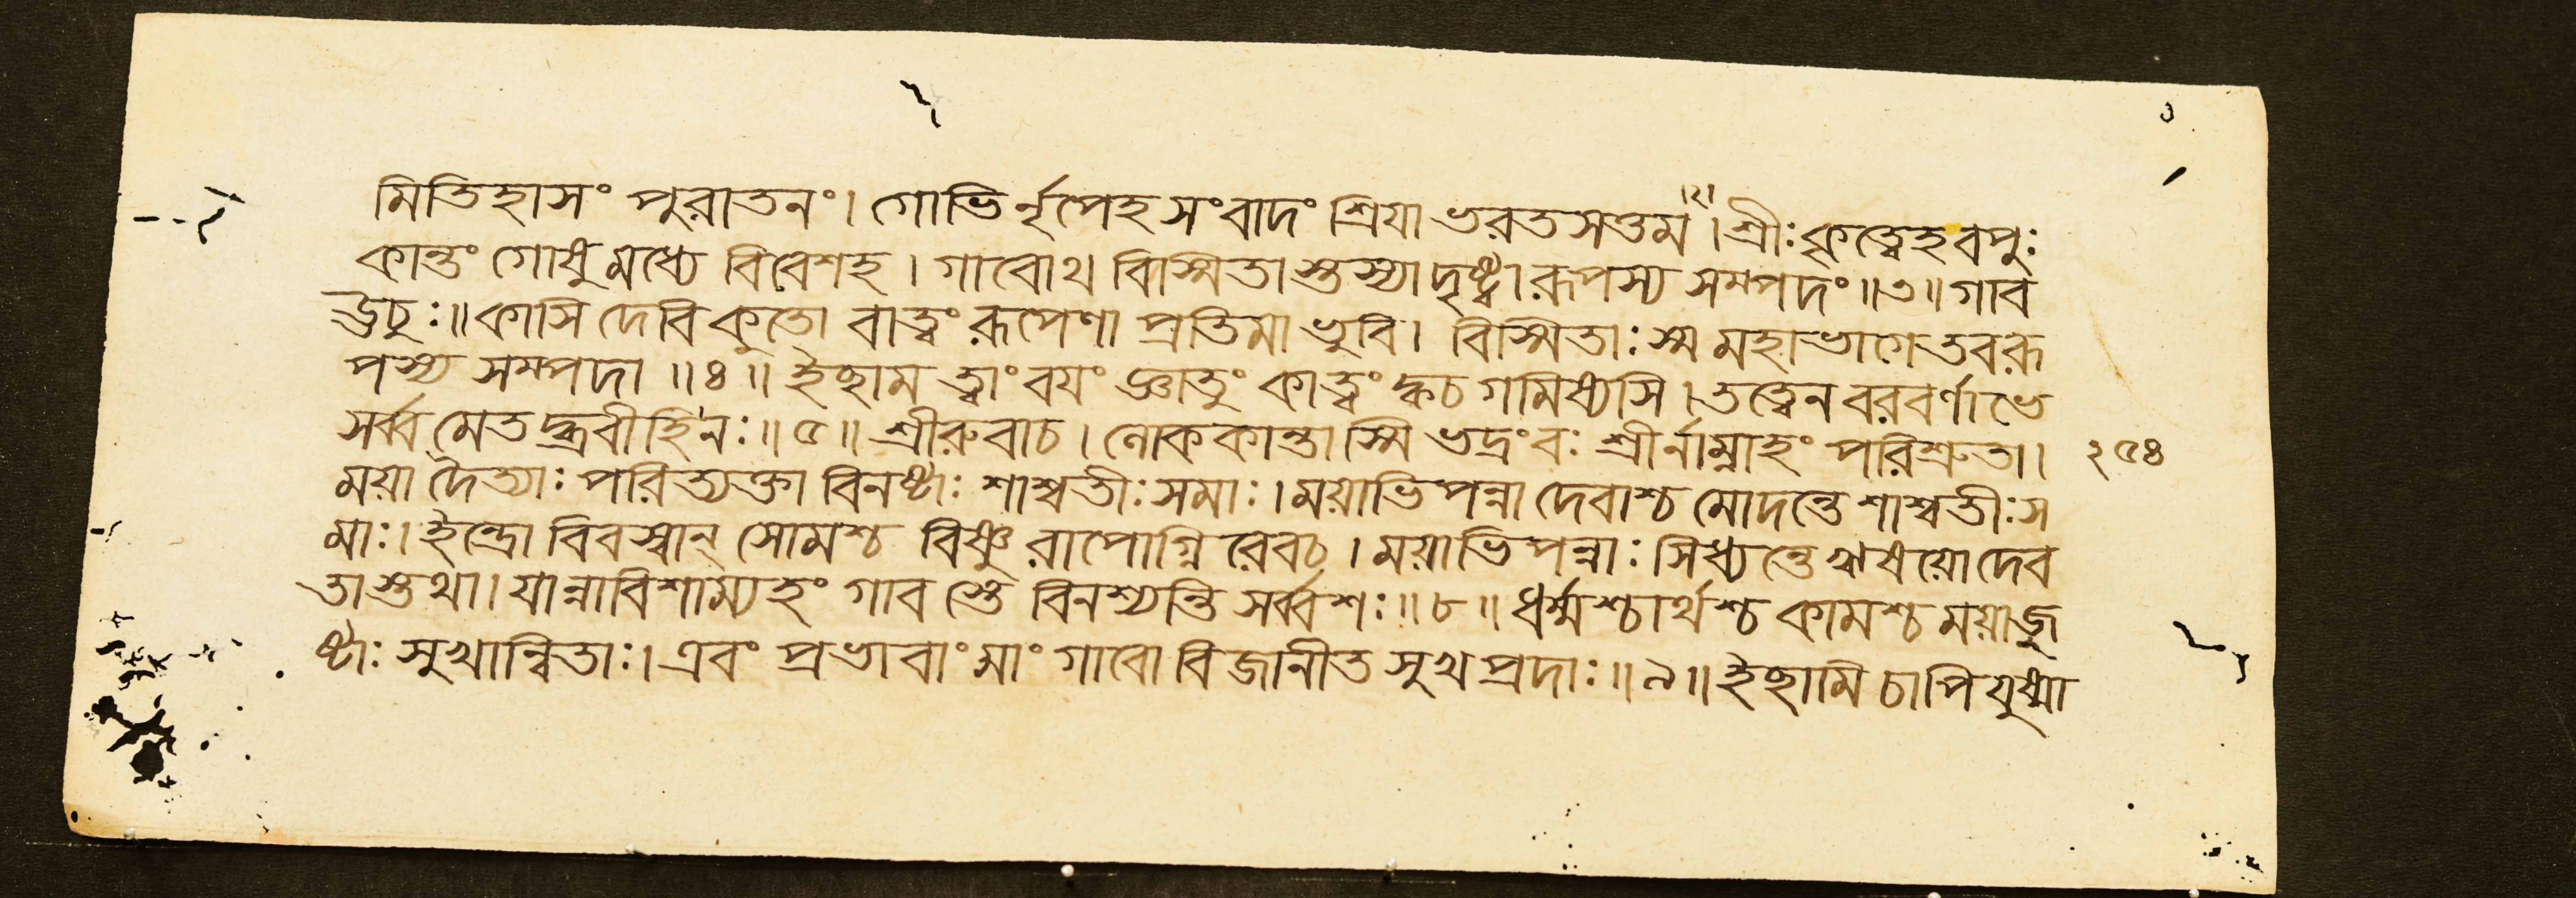 মিতিহাসং পুরাতনং। গোভির্নৃপেহ সংবাদং শ্রিযা ভরতসত্তম।২। শ্রীঃ কৃত্বেহ বপুঃ
কান্তং গোষু মধ্যে বিবেশহ। গাবোথ বিস্মিতাস্তস্যা দৃষ্ট্বা রূপস্য সম্পদং॥৩॥ গাব
ঊচুঃ॥ কাসি দেবি কুতো বাত্বং রূপেণা প্রতিমা ভুবি। বিস্মিতাঃ স্ম মহাভাগে তব রূ
পস্য সম্পদা॥৪॥ ইছাম ত্বাং বযং জ্ঞাতুং কাত্বং ক্বচ গমিষ্যসি। তত্ত্বেন বরবর্ণাভে
সর্ব্বমেতদ্ব্রবীহি নঃ॥৫॥ শ্রীরুবাচ। লোককান্তাস্মি ভদ্রং বঃ শ্রীর্নাম্নাহং পরিশ্রুতা।
ময়া দৈত্যাঃ পরিত্যক্তা বিনষ্টাঃ শাশ্বতীঃ সমাঃ। ময়াভিপন্না দেবাশ্চ মোদন্তে শাশ্বতীঃ স
মাঃ। ইন্দ্রো বিবস্বান্ সোমশ্চ বিষ্ণুরাপোগ্নিরেবচ। ময়াভিপন্নাঃ সিধ্যন্তে ঋষয়ো দেব
তাস্তথা। যান্নাবিশাম্যহং গাবস্তে বিনশ্যন্তি সর্ব্বশঃ॥৮॥ ধর্ম্মশ্চার্থশ্চ কামশ্চ ময়া জু
ষ্টাঃ সুখান্বিতাঃ। এবং প্রভাবাং মাং গাবো বিজানীত সুখপ্রদাঃ॥৯॥ ইছামি চাপি যুষ্মা
২৫৪